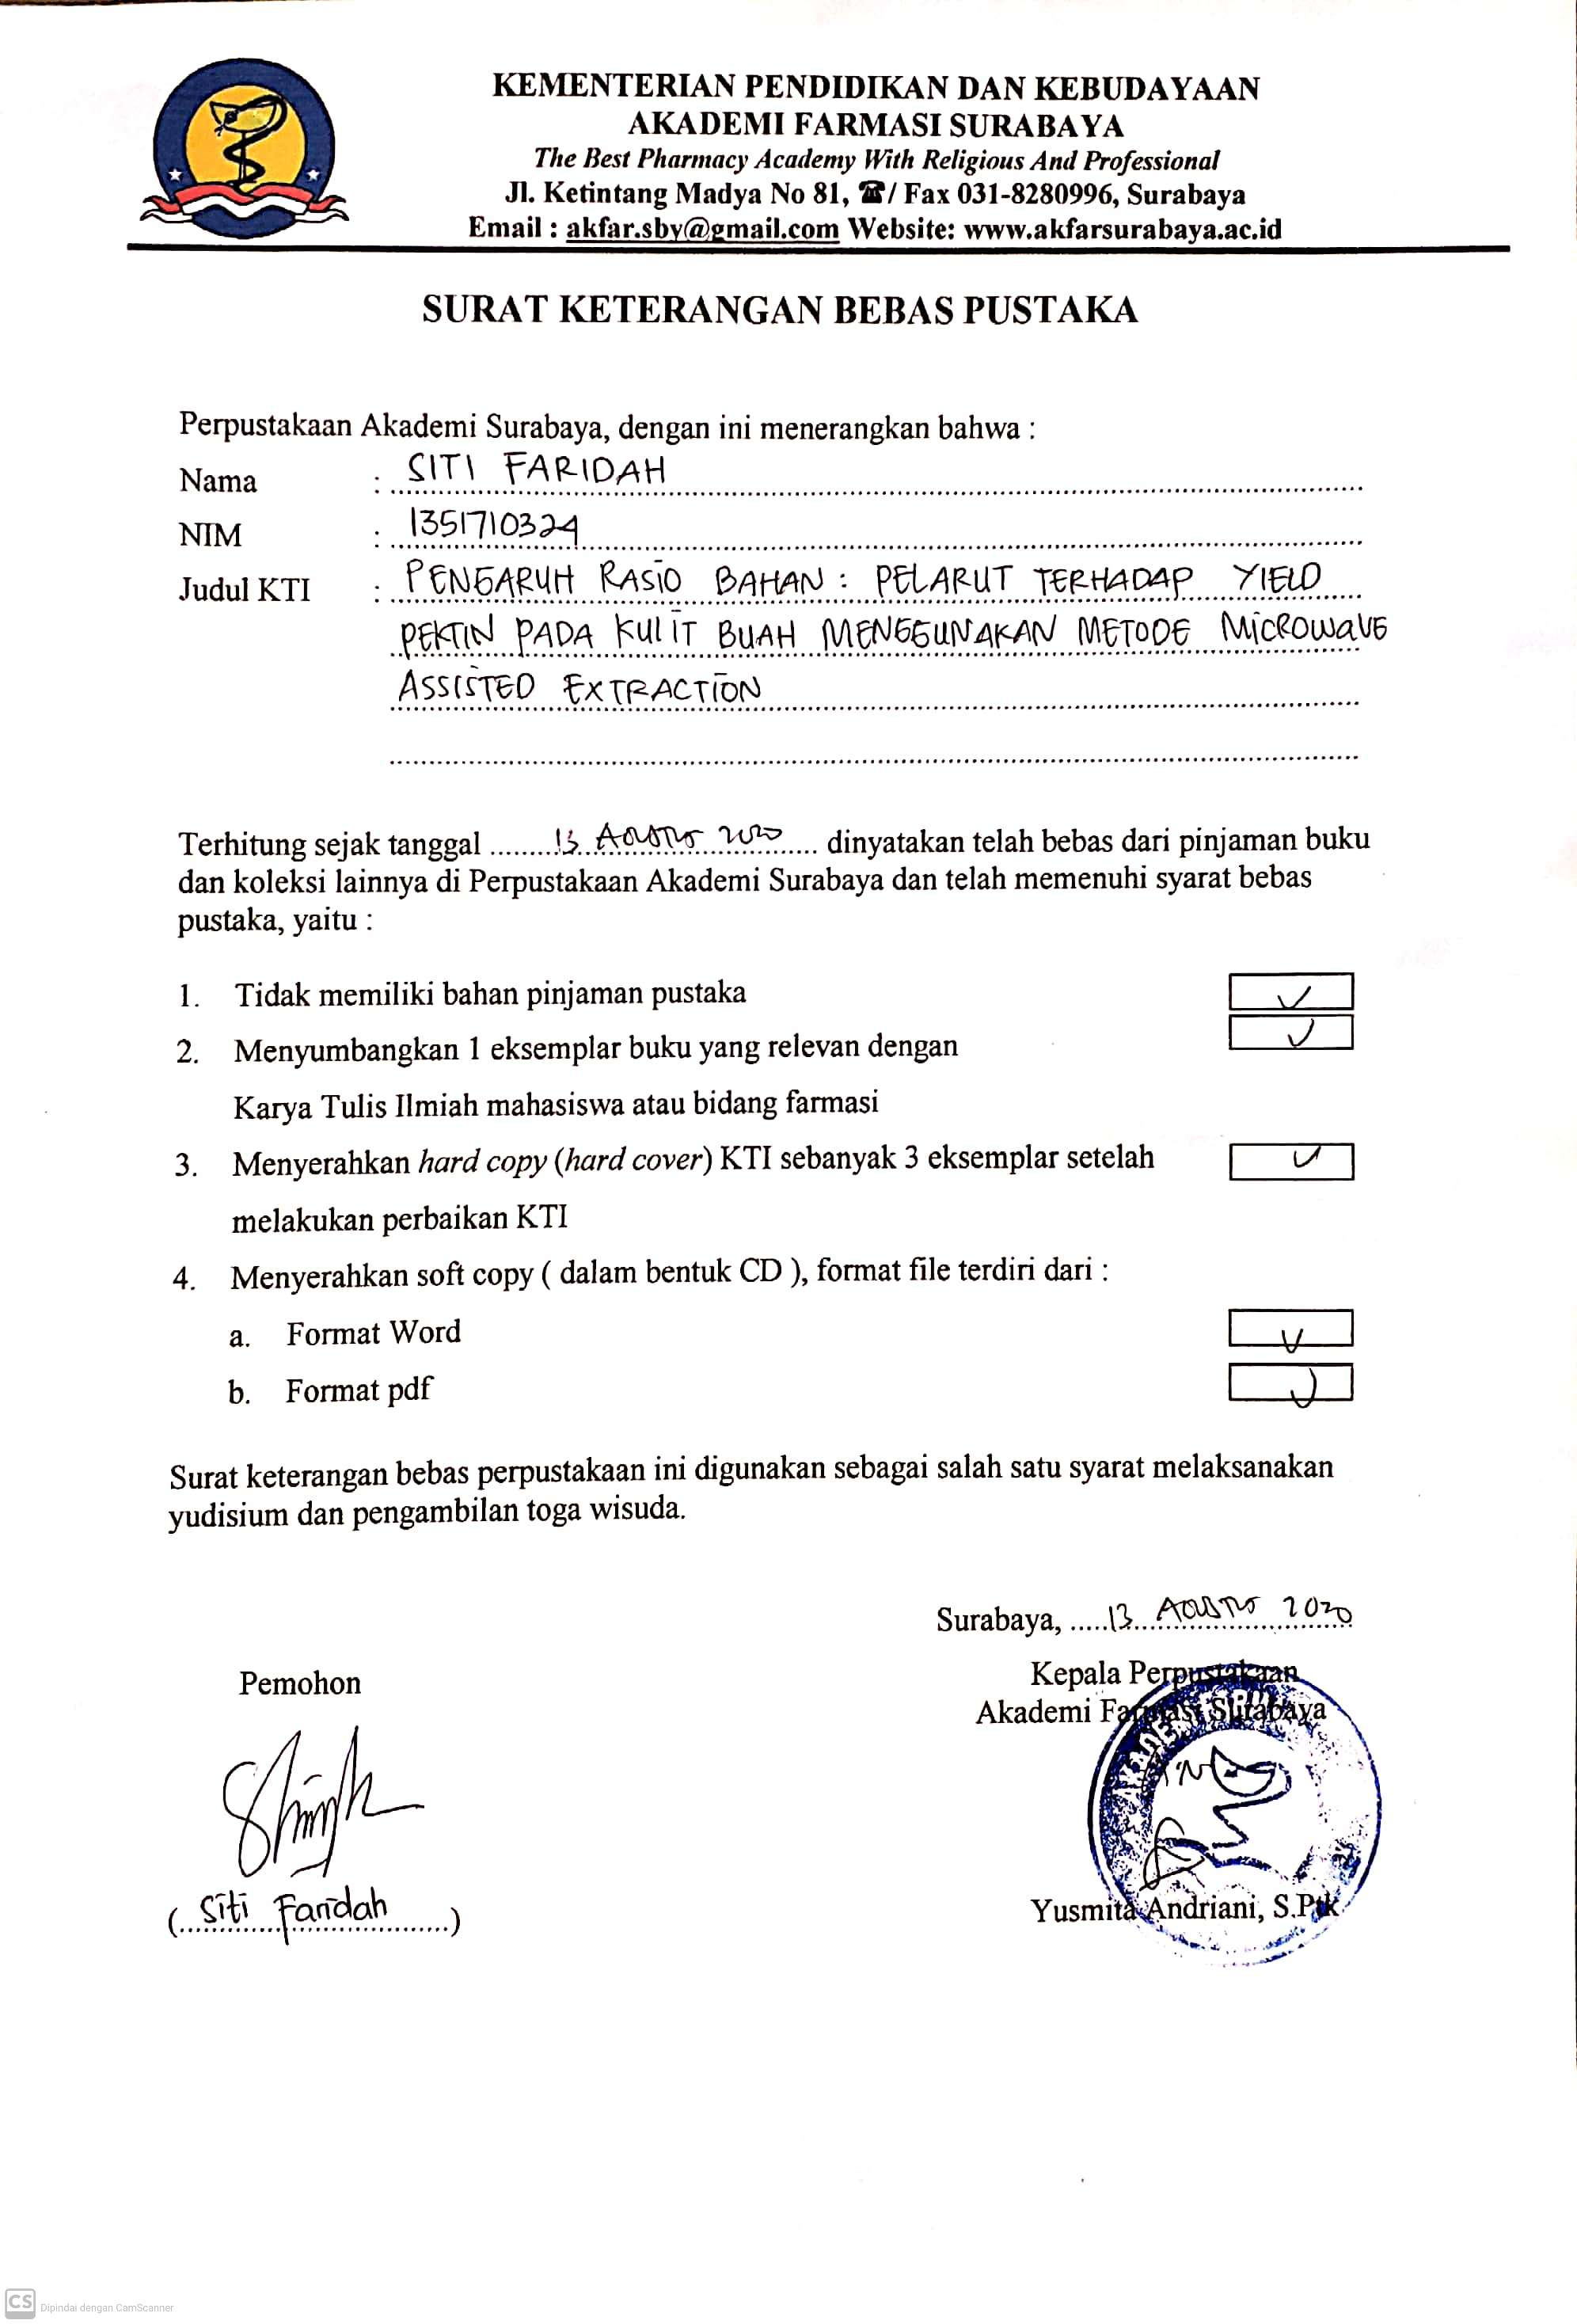 KEMENTERIAN PENDIDIKAN DAN KEBUDAYAAN
AKADEMI FARMASI SURABAYA
The Best Pharmacy Academy With Religious And Professional
Jl. Ketintang Madya No 81, ☎/ Fax 031-8280996, Surabaya
Email : akfar.sby@gmail.com Website: www.akfarsurabaya.ac.id
SURAT KETERANGAN BEBAS PUSTAKA
Perpustakaan Akademi Surabaya, dengan ini menerangkan bahwa :
Nama : SITI FARIDAH
NIM : 1351710324
Judul KTI : PENGARUH RASIO BAHAN : PELARUT TERHADAP YIELD
PEKTIN PADA KULIT BUAH MENGGUNAKAN METODE MICROWAVE
ASSISTED EXTRACTION
Terhitung sejak tanggal 13 Agustus 2020 dinyatakan telah bebas dari pinjaman buku
dan koleksi lainnya di Perpustakaan Akademi Surabaya dan telah memenuhi syarat bebas
pustaka, yaitu :
1. Tidak memiliki bahan pinjaman pustaka ✓
2. Menyumbangkan 1 eksemplar buku yang relevan dengan ✓
Karya Tulis Ilmiah mahasiswa atau bidang farmasi
3. Menyerahkan hard copy (hard cover) KTI sebanyak 3 eksemplar setelah ✓
melakukan perbaikan KTI
4. Menyerahkan soft copy ( dalam bentuk CD ), format file terdiri dari :
a. Format Word ✓
b. Format pdf ✓
Surat keterangan bebas perpustakaan ini digunakan sebagai salah satu syarat melaksanakan
yudisium dan pengambilan toga wisuda.
Surabaya, 13 Agustus 2020
Pemohon
Kepala Perpustakaan
Akademi Farmasi Surabaya
(Siti Faridah)
Yusmita Andriani, S.Ptk
CS Dipindai dengan CamScanner